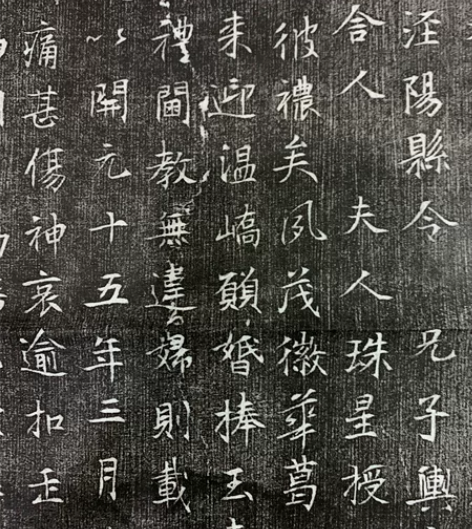 泾陽縣令 兄子輿
舍人 夫人珠星授
彼禯矣夙茂徽華葛
来迎温嶠願婚捧玉
禮閫教無違婦則載
以開元十五年三月
痛甚傷神哀逾扣